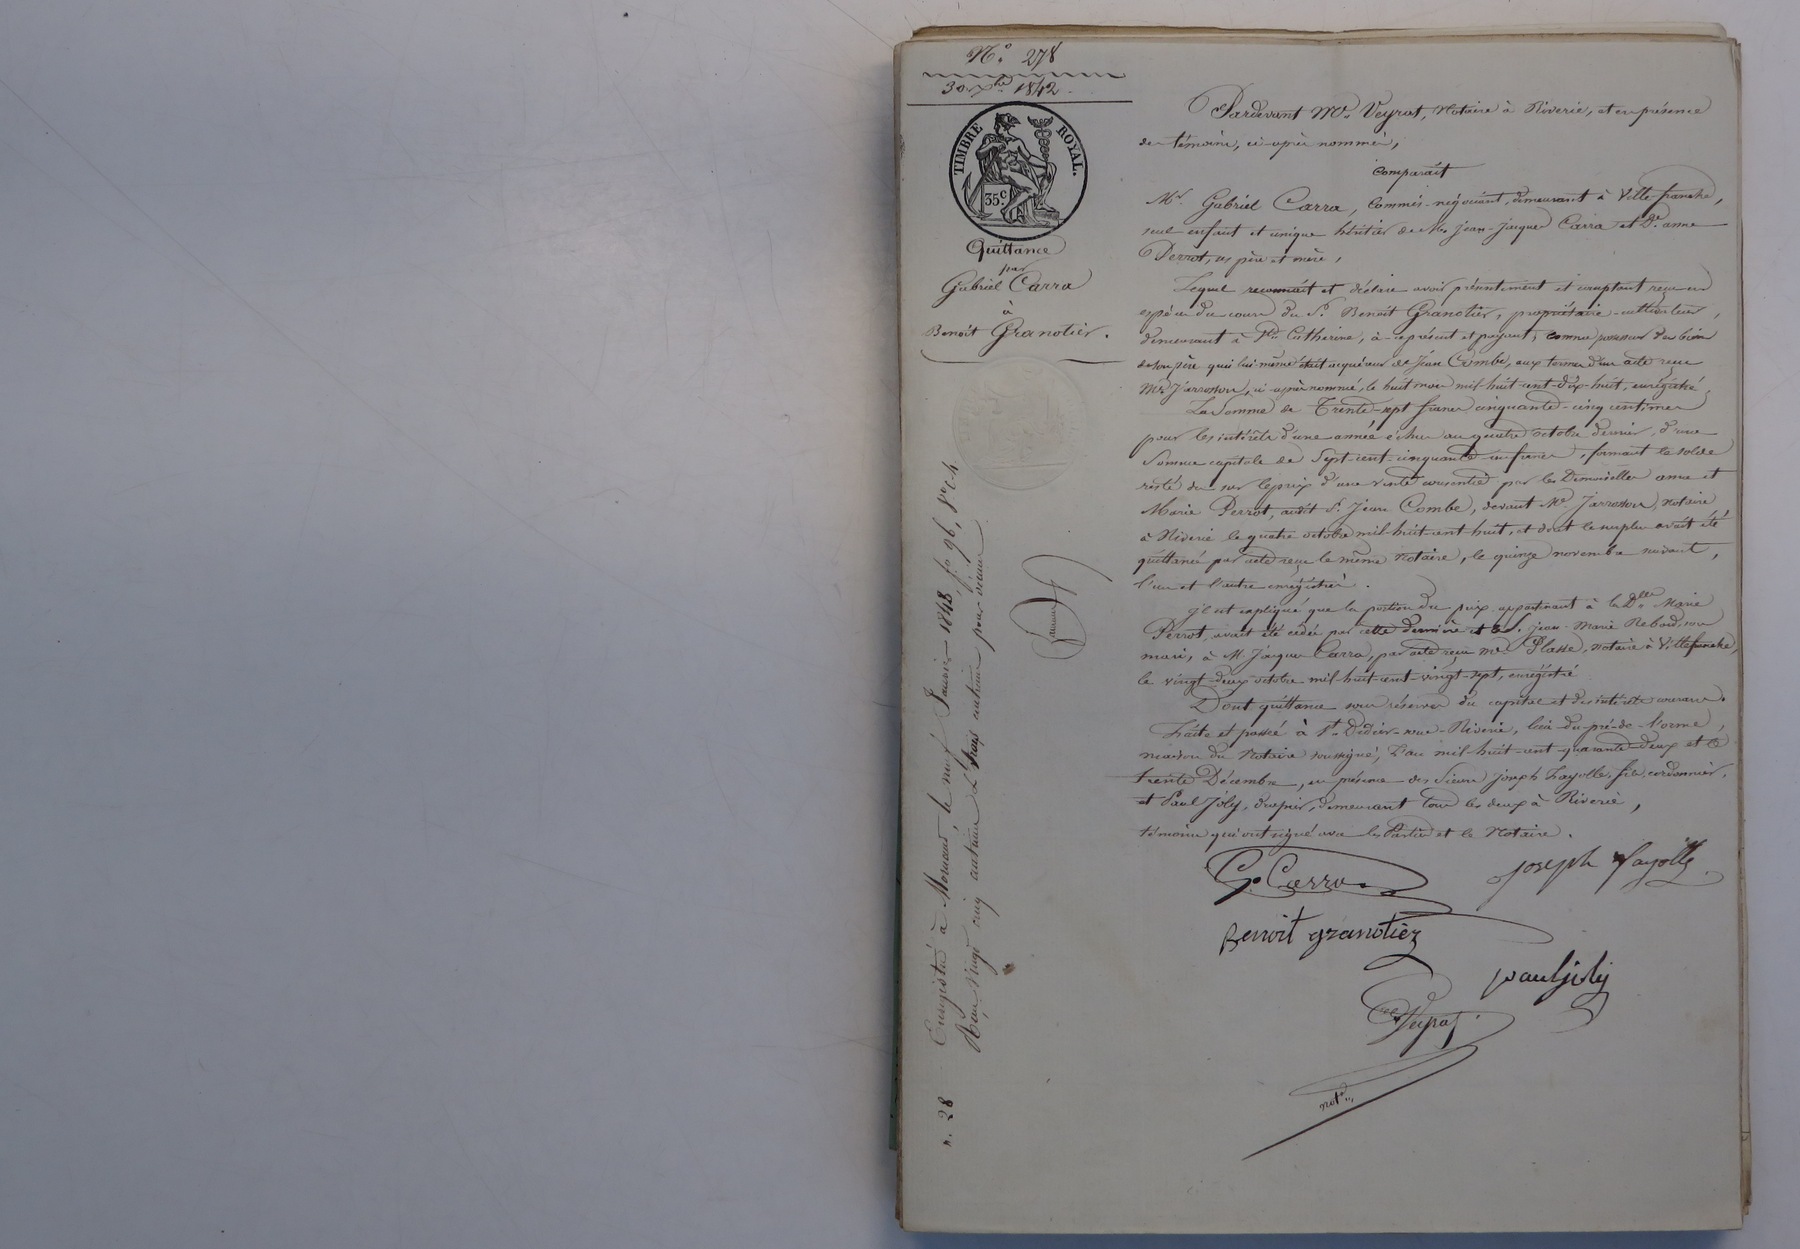 N° 278
30 Xbre 1842.
TIMBRE ROYAL.
35c.
Quittance
par
Gabriel Carra
à
Benoît Granotier.
Pardevant Me Veyrat, Notaire à Riverie, et en présence
de témoins, ci-après nommés,
Comparaît
Mr. Gabriel Carra, Commis-négociant, demeurant à Villefranche,
seul enfant et unique héritier de Mrs Jean-Jacques Carra et De. anne
Perrot, ses père et mère,
Lequel reconnaît et déclare avoir présentement et comptant reçu en
espèces du cours du Sr. Benoît Granotier, propriétaire-cultivateur,
demeurant à Ste Catherine, à ce présent et payant, comme possesseur des biens
de son père qui lui-même était acquéreur de Jean Combe, aux termes d'un acte reçu
Me Jarrosson, ci-après nommé, le huit mars mil-huit-cent-dix-huit, enregistré,
La Somme de Trente-sept francs cinquante-cinq centimes
pour les intérêts d'une année échus au quatre octobre dernier, d'une
Somme capitale de Sept-cent-cinquante-un francs, formant le solde
resté dû sur le prix d'une vente consentie par les Demoiselles anne et
Marie Perrot, audit Sr. Jean Combe, devant Me Jarrosson, Notaire
à Riverie le quatre octobre mil-huit-cent-huit, et dont le surplus avait été
quittancé par acte reçu le même Notaire, le quinze novembre suivant,
l'un et l'autre enregistrés.
Il est expliqué que la portion du prix appartenant à la Dlle Marie
Perrot, avait été cédée par cette dernière et Sr. Jean-Marie Rebard, son
mari, à M. Jacques Carra, par acte reçu Me Plasse, Notaire à Villefranche,
le vingt-deux octobre mil-huit-cent-vingt-sept, enregistré
Dont quittance sous réserves du capital et des intérêts courans.
Faite et passée à St. Didier-sous-Riverie, lieu du-pré-de-l'orme,
maison du Notaire soussigné, L'an mil-huit-cent-quarante-deux et le
trente Décembre, en présence des Sieurs Joseph Fayolle, fils, cordonnier,
et Paul Joly, drapier, demeurant tous les deux à Riverie,
témoins qui ont signé avec les Parties et le Notaire.
G. Carra
Joseph fayolle
Benoit granotier
paul joly
Veyrat
not.re
Enregistré à Mornand le neuf Janvier 1843 fo 96, Ro c 4.
Reçu vingt cinq centimes & trois centimes pour décime
n. 28